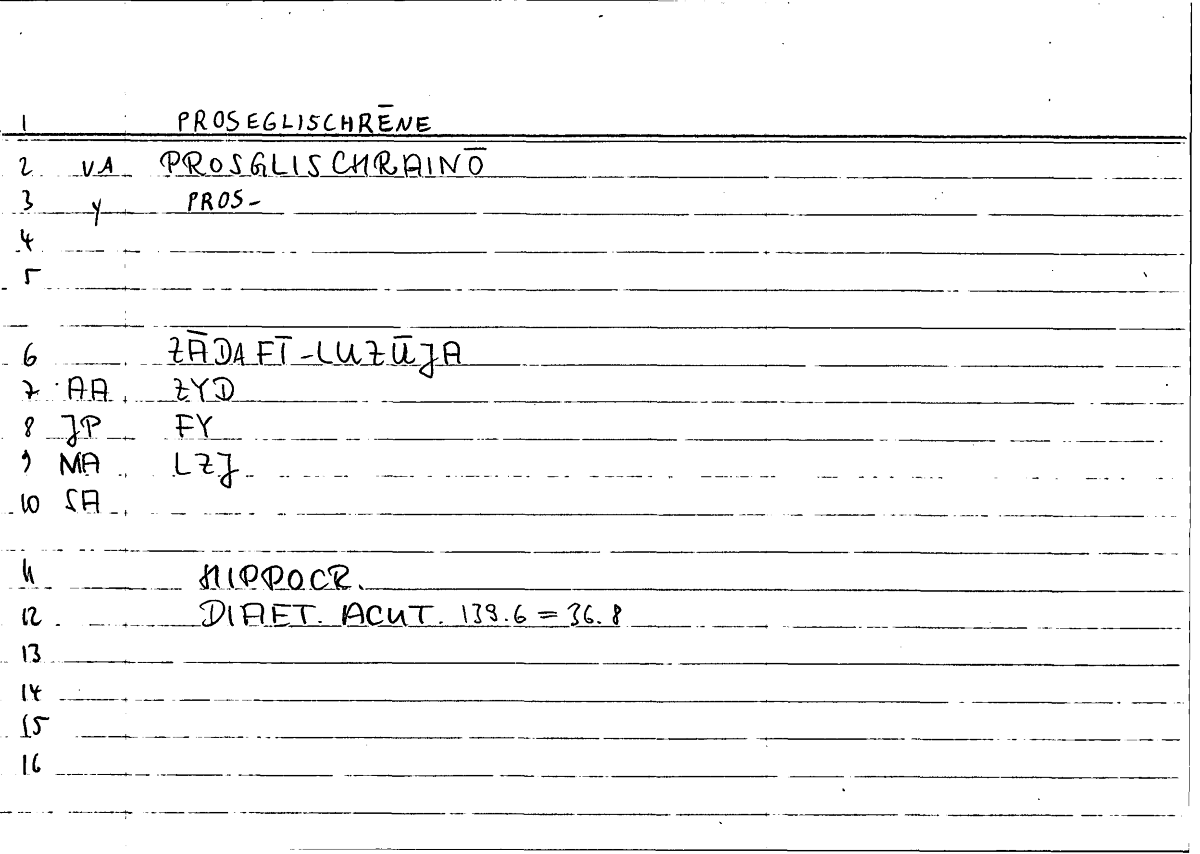 1 PROSEGLISCHRĒNE
2 VA PROSGLISCHRAINŌ
3 Y PROS-
4
5
6 ZĀDA FĪ-LUZŪJA
7 AA ZYD
8 JP FY
9 MA LZJ
10 SA
11 HIPPOCR.
12 DIAET. ACUT. 139.6 = 36.8
13
14
15
16